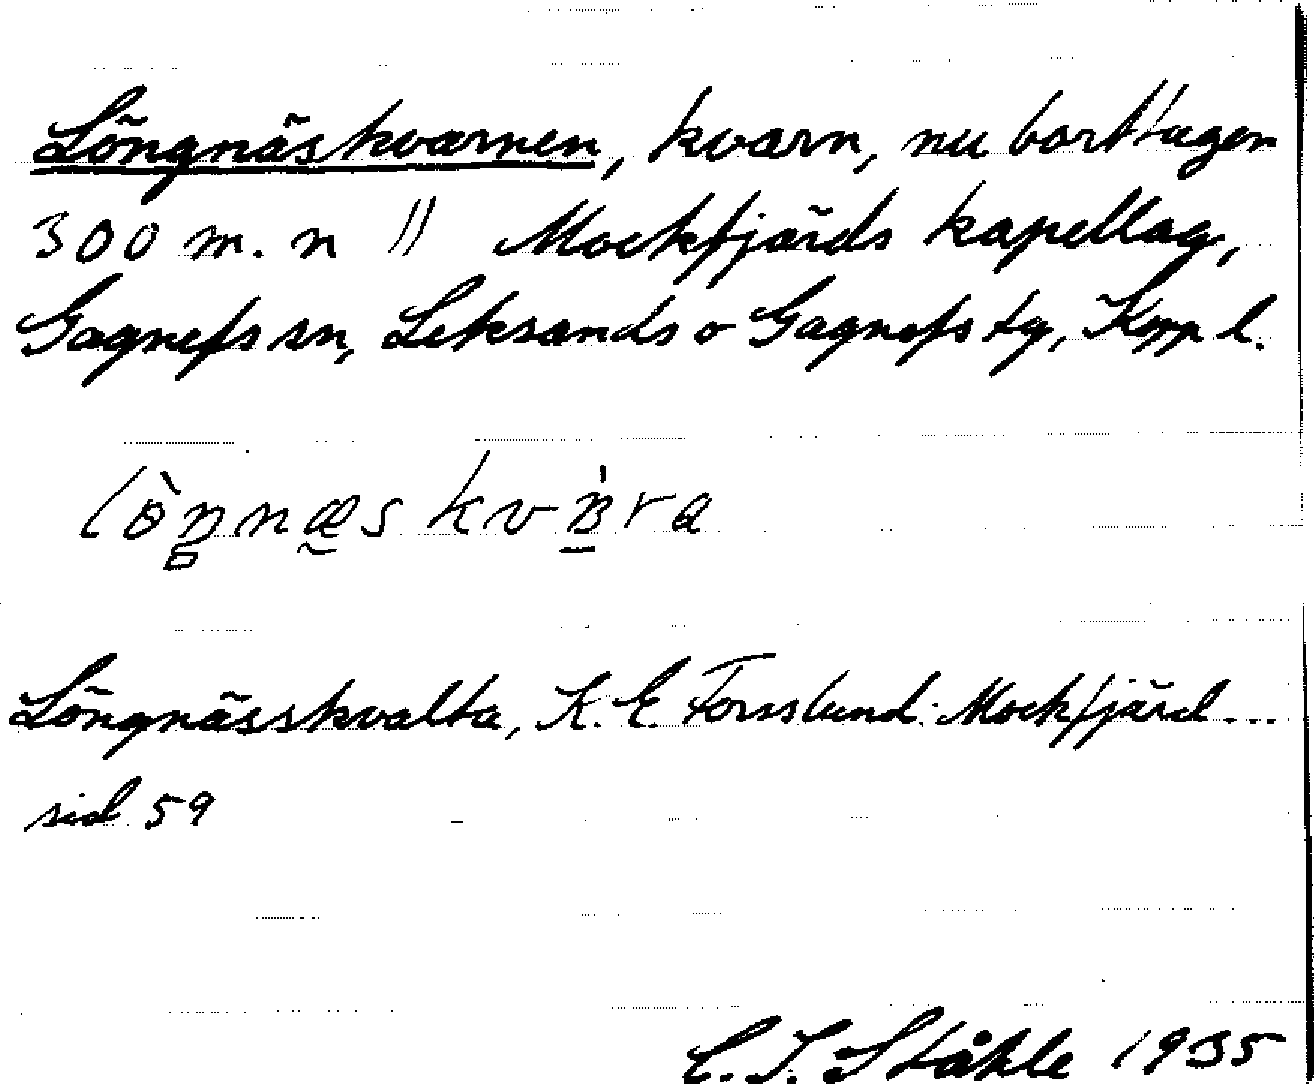 Löngnäskvarnen, kvarn, nu borttagen
300 m. n // Mockfjärds kapellag,
Gagnefs sn, Leksands o Gagnefs tg, Kopp l.
Löngnässkvalta, K. E. Forsslund: Mockfjärd ...
sid 59
C. I. Ståhle 1935